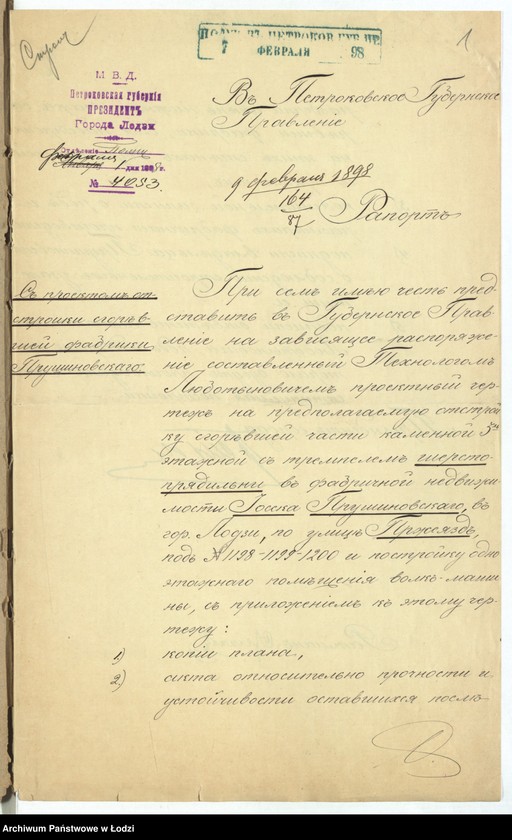 Строит
1
ПОЛУЧ. ВЪ ПЕТРОКОВ. ГУБ. ПР.
7 ФЕВРАЛЯ 98
М. В. Д.
Петроковская губернія
ПРЕЗИДЕНТЪ
Города Лодзи
Отдѣленіе Полиц
февраля 1 дня 1898 г.
№ 4083.
Въ Петроковское Губернское
Правленіе
9 февраля 1898
164
87
Рапортъ
Съ проектомъ от
стройки сгорѣв-
шей фабрики
Прушиновскаго.
При семъ имѣю честь пред
ставить въ Губернское Прав-
леніе на зависящее распоряже-
ніе составленный Технологомъ
проектный чер-
тежъ на предполагаемую отстрой
ку сгорѣвшей части каменной 5ти
этажной съ тремпелемъ шерсто-
прядильни въ фабричной недвижи-
мости Іосека Прушиновскаго, въ
гор. Лодзи, по улицѣ Пржеяздъ,
подъ № 1198-1199-1200 и постройку одно
этажнаго помѣщенія волк-маши-
ны, съ приложеніемъ къ этому чер-
тежу:
1) копіи плана,
2) акта относительно прочности и
устойчивости оставшихся послѣ
Archiwum Państwowe w Łodzi